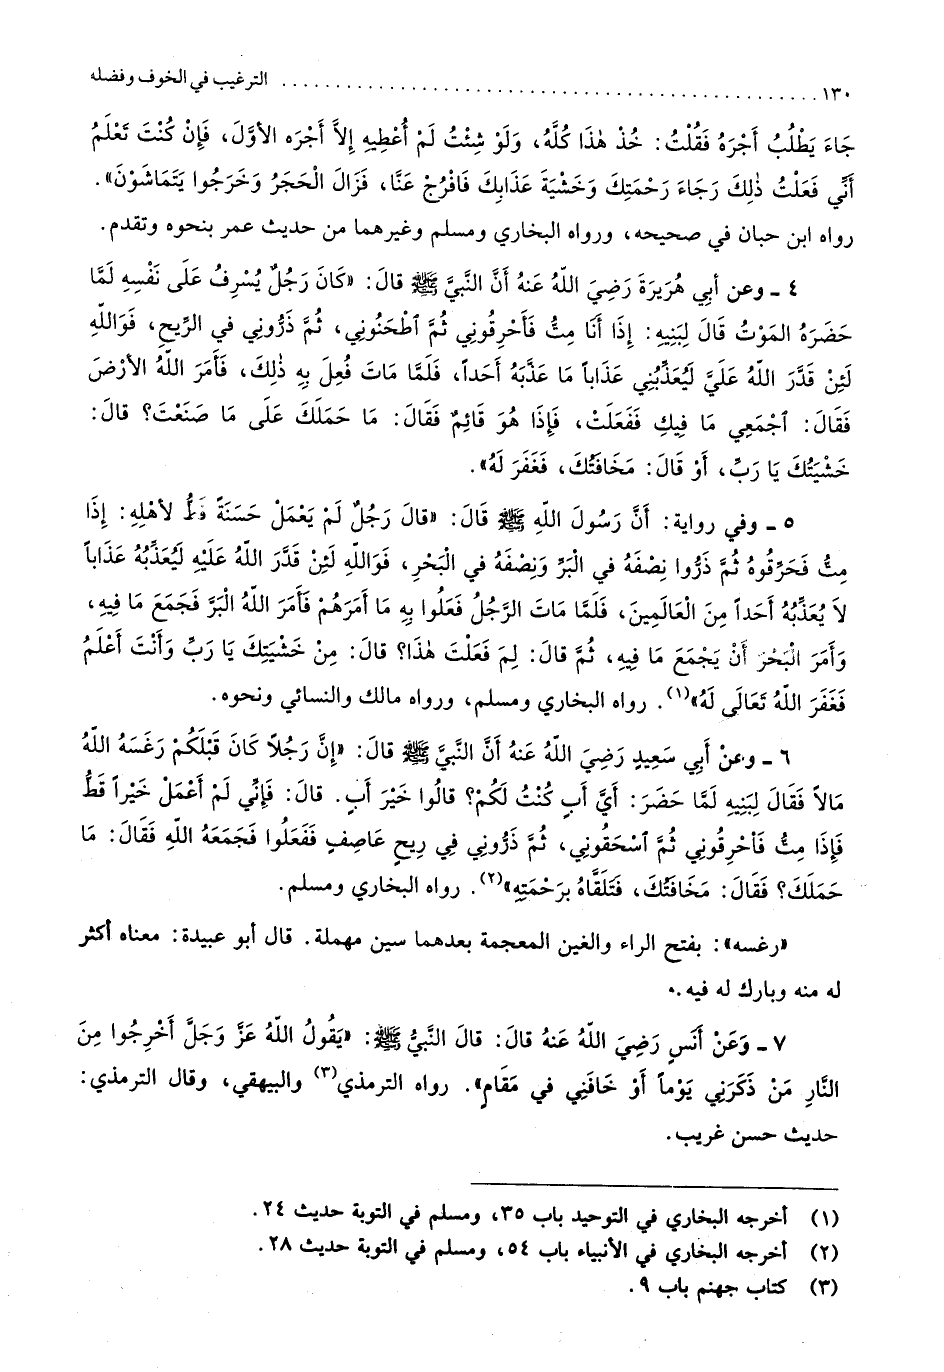 ١٣٠ ............................................. الترغيب في الخوف وفضله
جَاءَ يَطْلُبُ أَجْرَهُ فَقُلْتُ: خُذْ هٰذَا كُلَّهُ، وَلَوْ شِئْتُ لَمْ أُعْطِيهِ إِلاَّ أَجْرَه الأوَّلَ، فَإِن كُنْتَ تَعْلَمُ
أَنِّي فَعَلْتُ ذٰلِكَ رَجَاءَ رَحْمَتِكَ وَخَشْيَةَ عَذَابِكَ فَافْرُجْ عَنَّا، فَزَالَ الْحَجَرُ وَخَرَجُوا يَتَمَاشَوْنَ».
رواه ابن حبان في صحيحه، ورواه البخاري ومسلم وغيرهما من حديث عمر بنحوه وتقدم.
٤ ـ وعن أَبي هُرَيرَةَ رَضِيَ اللَّهُ عَنهُ أَنَّ النبيَّ ﷺ قالَ: «كَانَ رَجُلٌ يُسْرِفُ عَلَى نَفْسِهِ لَمَّا
حَضَرَهُ المَوْتُ قَالَ لِبَنِيهِ: إِذَا أَنَا مِتُّ فَأَحْرِقُونِي ثُمَّ ٱطْحَنُونِي، ثُمَّ ذَرُّونِي في الرِّيحِ، فَوَاللَّهِ
لَئِنْ قَدَّرَ اللَّهُ عَلَيَّ لَيُعَذِّبُنِي عَذَاباً مَا عَذَّبَهُ أَحَداً، فَلَمَّا مَاتَ فُعِلَ بِهِ ذٰلِكَ، فَأَمَرَ اللَّهُ الأرْضَ
فَقَالَ: ٱجْمَعِي مَا فِيكِ فَفَعَلَتْ، فَإِذَا هُوَ قَائِمٌ فَقَالَ: مَا حَمَلَكَ عَلَى مَا صَنَعْتَ؟ قالَ:
خَشْيَتُكَ يَا رَبِّ، أَوْ قَالَ: مَخَافَتُكَ، فَغَفَرَ لَهُ».
٥ ـ وفي رواية: أَنَّ رَسُولَ اللّهِ ﷺ قَالَ: «قالَ رَجُلٌ لَمْ يَعْمَلْ حَسَنَةً قَطُّ لأهْلِهِ: إِذَا
مِتُّ فَحَرِّقُوهُ ثُمَّ ذَرُّوا نِصْفَهُ في الْبَرِّ وَنِصْفَهُ في الْبَحْرِ، فَوَاللَّهِ لَئِنْ قَدَّرَ اللَّهُ عَلَيْهِ لَيُعَذِّبُهُ عَذَاباً
لاَ يُعَذِّبُهُ أَحَداً مِنَ الْعَالَمِينَ، فَلَمَّا مَاتَ الرَّجُلُ فَعَلُوا بِهِ مَا أَمَرَهُمْ فَأَمَرَ اللَّهُ الْبَرَّ فَجَمَعَ مَا فِيهِ،
وَأَمَرَ الْبَحْرَ أَنْ يَجْمَعَ مَا فِيهِ، ثُمَّ قالَ: لِمَ فَعَلْتَ هٰذَا؟ قالَ: مِنْ خَشْيَتِكَ يَا رَبِّ وَأَنْتَ أَعْلَمُ
فَغَفَرَ اللَّهُ تَعَالَى لَهُ»(١). رواه البخاري ومسلم، ورواه مالك والنسائي ونحوه.
٦ ـ وعنْ أَبي سَعِيدٍ رَضِيَ اللَّهُ عَنهُ أَنَّ النَّبيَّ ﷺ قالَ: «إِنَّ رَجُلاً كَانَ قَبْلَكُمْ رَغَسَهُ اللَّهُ
مَالاً فَقَالَ لِبَنِيهِ لَمَّا حَضَرَ: أَيَّ أَبٍ كُنْتُ لَكُمْ؟ قالُوا خَيْرَ أَبٍ. قالَ: فَإِنِّي لَمْ أَعْمَلْ خَيْراً قَطُّ
فَإِذَا مِتُّ فَأَحْرِقُونِي ثُمَّ ٱسْحَقُونِي، ثُمَّ ذَرُّونِي فِي رِيحٍ عَاصِفٍ فَفَعَلُوا فَجَمَعَهُ اللّهِ فَقَالَ: مَا
حَمَلَكَ؟ فَقَالَ: مَخَافَتُكَ، فَتَلَقَّاهُ بِرَحْمَتِهِ»(٢). رواه البخاري ومسلم.
«رغسه»: بفتح الراء والغين المعجمة بعدهما سين مهملة. قال أبو عبيدة: معناه أكثر
له منه وبارك له فيه.
٧ ـ وَعَنْ أَنَسٍ رَضِيَ اللَّهُ عَنهُ قالَ: قالَ النَّبيُّ ﷺ: «يَقُولُ اللَّهُ عَزَّ وَجَلَّ أَخْرِجُوا مِنَ
النَّارِ مَنْ ذَكَرَنِي يَوْماً أَوْ خَافَنِي في مَقَامٍ». رواه الترمذي(٣) والبيهقي، وقال الترمذي:
حديث حسن غريب.
(١) أخرجه البخاري في التوحيد باب ٣٥، ومسلم في التوبة حديث ٢٤.
(٢) أخرجه البخاري في الأنبياء باب ٥٤، ومسلم في التوبة حديث ٢٨.
(٣) كتاب جهنم باب ٩.